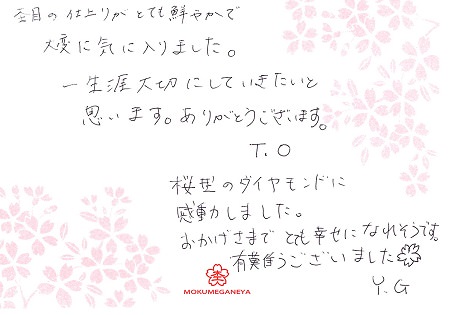 杢目の仕上りがとても鮮やかで
大変に気に入りました。
一生涯大切にしていきたいと
思います。ありがとうございます。
T.O
桜型のダイヤモンドに
感動しました。
おかげさまでとても幸せになれそうです。
有難うございました
Y.G
MOKUMEGANEYA